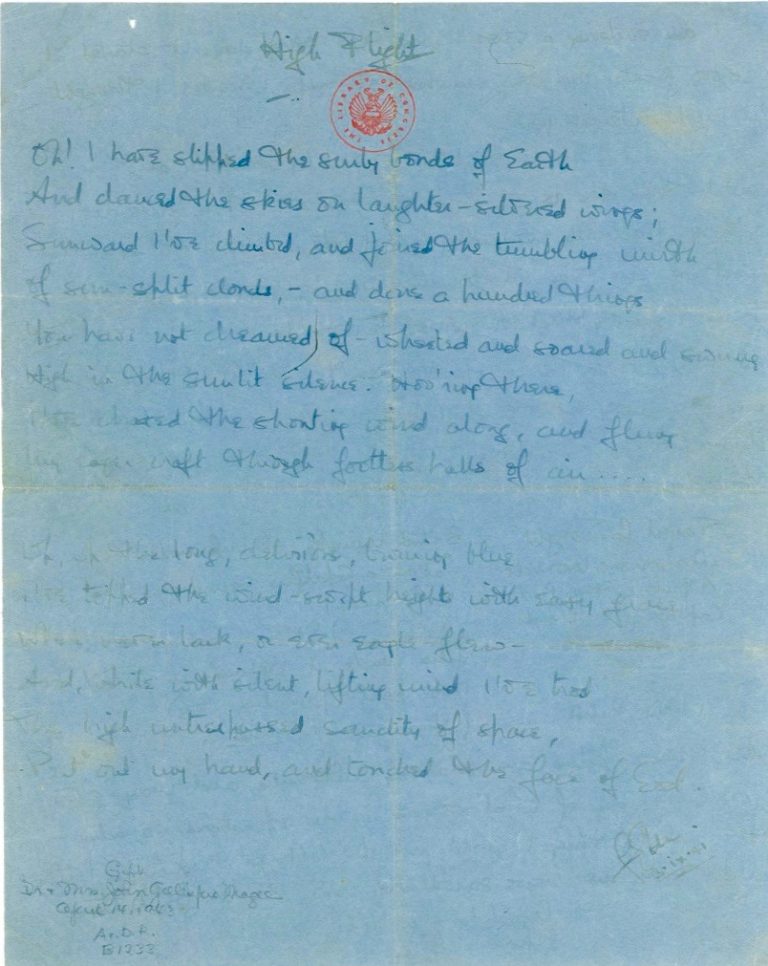 High Flight
THE LIBRARY OF CONGRESS
Oh! I have slipped the surly bonds of Earth
And danced the skies on laughter-silvered wings;
Sunward I've climbed, and joined the tumbling mirth
of sun-split clouds, - and done a hundred things
You have not dreamed of - wheeled and soared and swung
High in the sunlit silence. Hov'ring there,
I've chased the shouting wind along, and flung
My eager craft through footless halls of air....
Up, up the long, delirious, burning blue
I've topped the wind-swept heights with easy grace
Where never lark, or even eagle flew -
And, while with silent, lifting mind I've trod
The high untrespassed sanctity of space,
Put out my hand, and touched the face of God.
Gift
Dr & Mrs John Gillespie Magee
April 14, 1943
A.D.R.